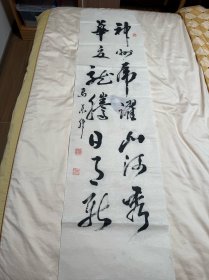 神州虎躍山河秀
華夏龍騰日月新